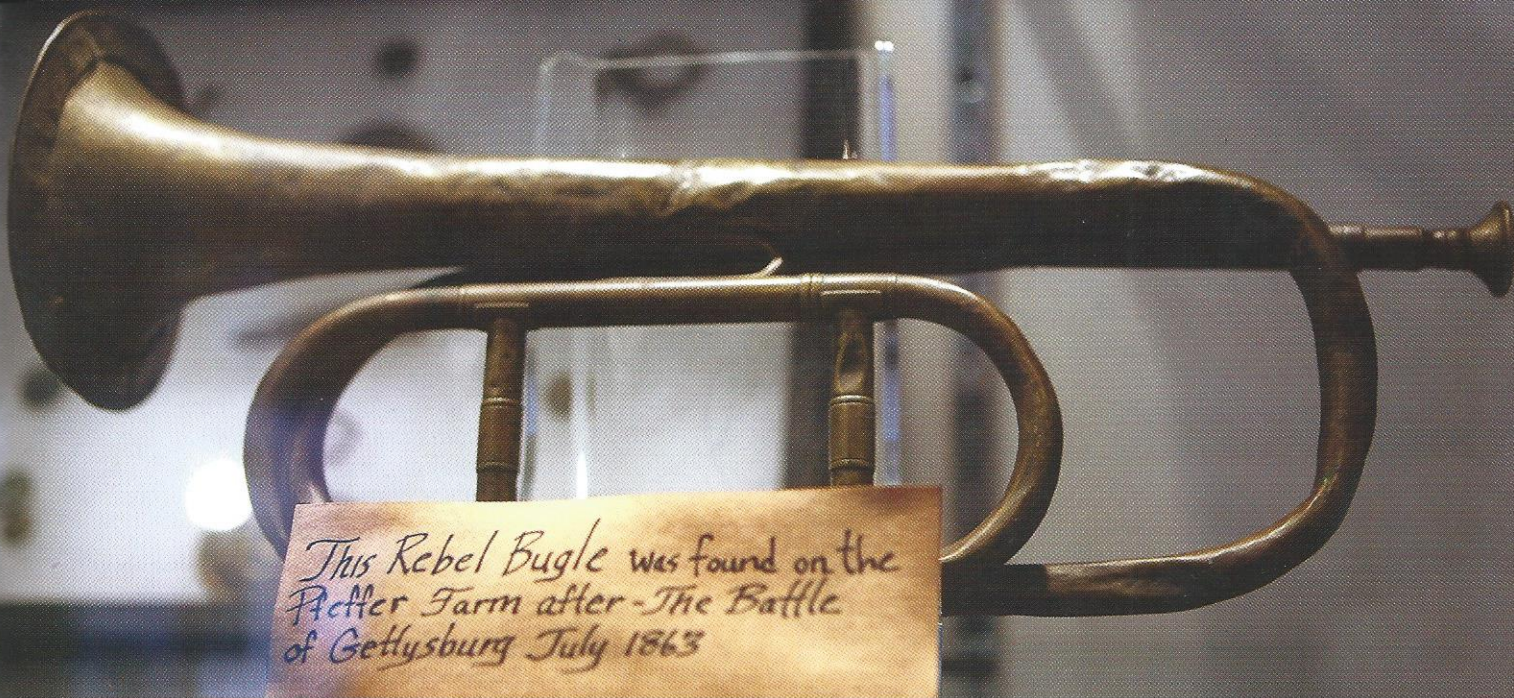 This Rebel Bugle was found on the
Pfeffer Farm after - The Battle
of Gettysburg July 1863